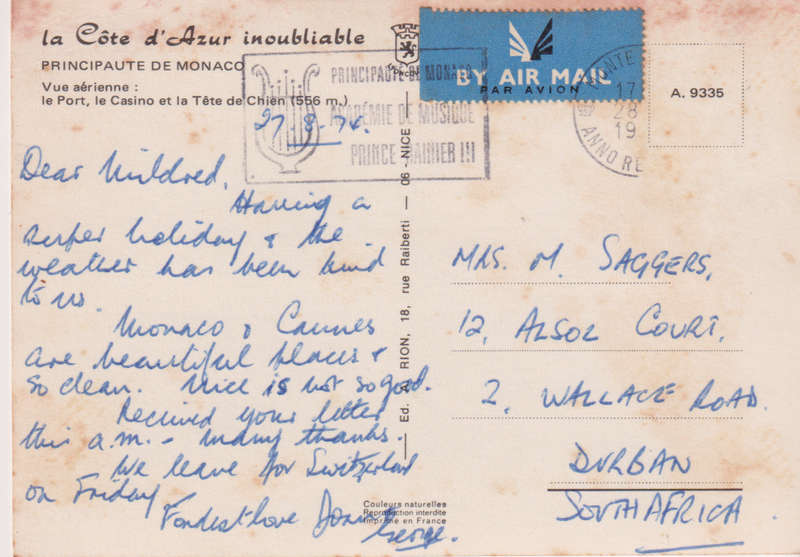 la Côte d'Azur inoubliable
PRINCIPAUTE DE MONACO
Vue aérienne :
le Port, le Casino et la Tête de Chien (556 m.)
27-8-74.
PRINCIPAUTÉ DE MONACO
ACADÉMIE DE MUSIQUE
PRINCE RAINIER III
BY AIR MAIL
PAR AVION
MONTE
17
28
19
ANNO RE
A. 9335
Dear Mildred,
Having a
super holiday & the
weather has been kind
to us.
Monaco & Cannes
are beautiful places &
so clean. Nice is not so good.
Received your letter
this a.m. - many thanks.
We leave for Switzerland
on Friday
Fondest love
George.
Ed. A. RION, 18, rue Raiberti — 06 -NICE
Couleurs naturelles
Reproduction interdite
Imprimé en France
MRS. M. SAGGERS,
12, ALSOL COURT,
2, WALLACE ROAD.
DURBAN
SOUTH AFRICA.